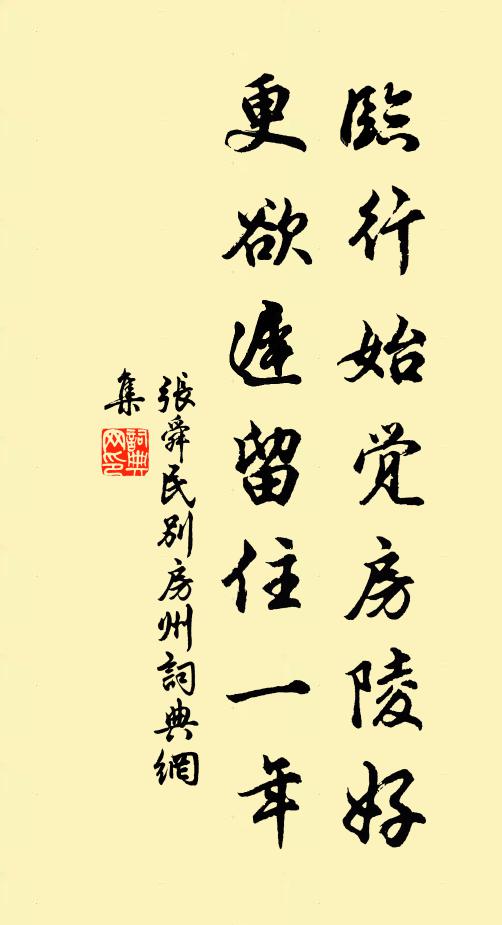 臨行始觉房陵好
更欲遅留住一年
張舜民别房州詞典網
集
詞典网印